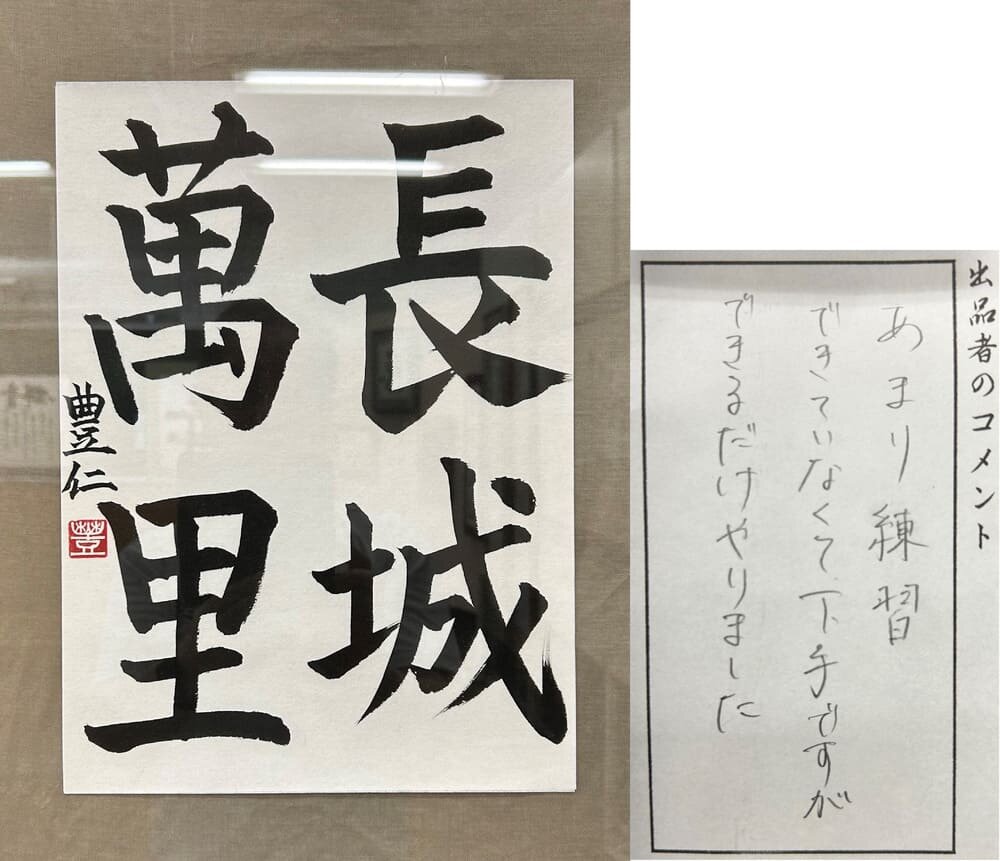 長城
萬里
豊仁
豊
出品者のコメント
あまり練習
できていなくて下手ですが
できるだけやりました